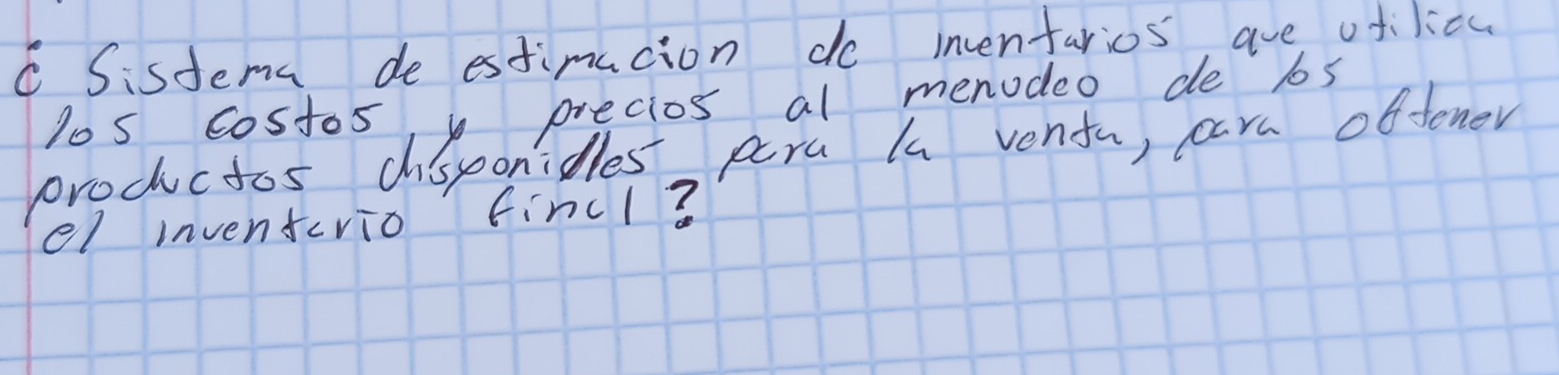 ¿ Sistema de estimacion de inventarios que utiliza
los costos, y precios al menudeo de los
productos disponibles para la venta, para obtener
el inventario final?